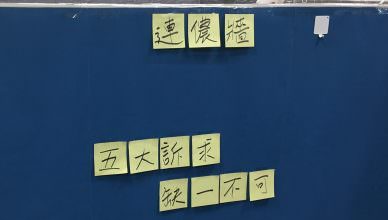 連儂牆
五大訴求
缺一不可